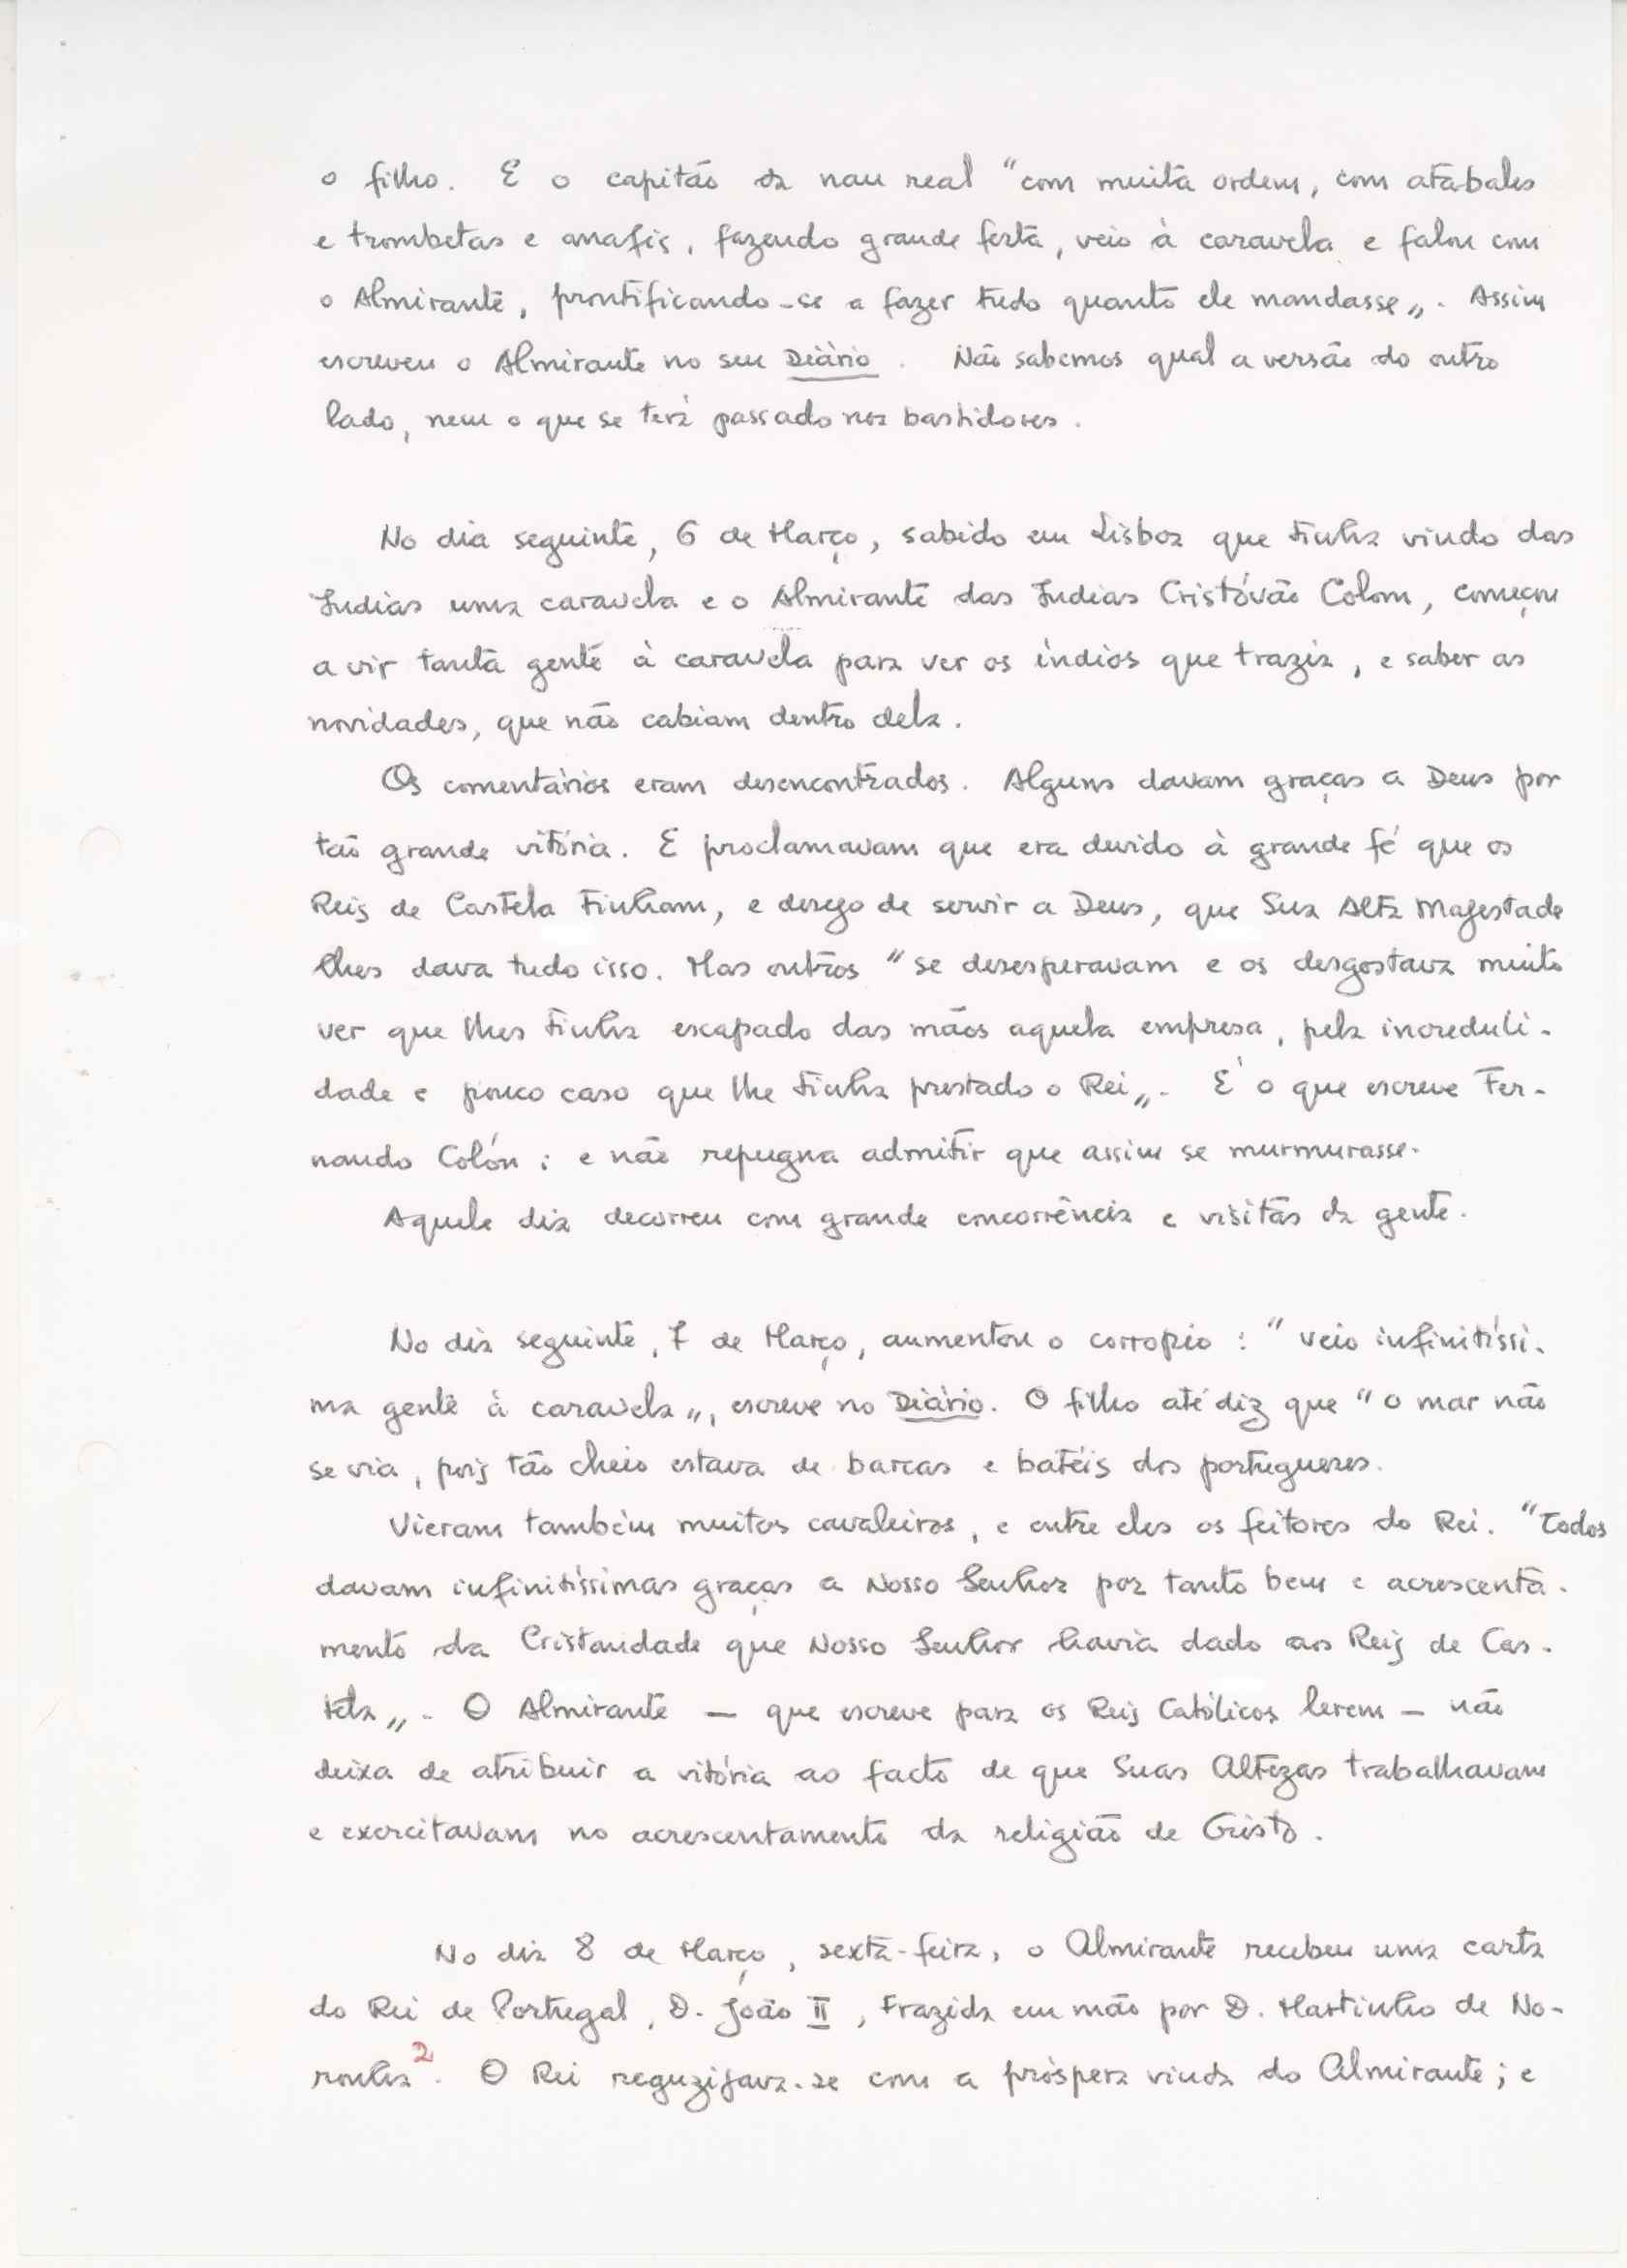 o filho. E o capitão da nau real "com muita ordem, com atabales
e trombetas e anafis, fazendo grande festa, veio à caravela e falou com
o Almirante, prontificando-se a fazer tudo quanto ele mandasse„. Assim
escreveu o Almirante no seu Diário. Não sabemos qual a versão do outro
lado, nem o que se terá passado nos bastidores.
No dia seguinte, 6 de Março, sabido em Lisboa que tinha vindo das
Indias uma caravela e o Almirante das Indias Cristóvão Colom, começou
a vir tanta gente à caravela para ver os índios que trazia, e saber as
novidades, que não cabiam dentro dela.
Os comentários eram desencontrados. Alguns davam graças a Deus por
tão grande vitória. E proclamavam que era devido à grande fé que os
Reis de Castela tinham, e desejo de servir a Deus, que Sua Alta Magestade
lhes dava tudo isso. Mas outros "se desesperavam e os desgostava muito
ver que lhes tinha escapado das mãos aquela empresa, pela increduli-
dade e pouco caso que lhe tinha prestado o Rei„. É o que escreve Fer-
nando Colón; e não repugna admitir que assim se murmurasse.
Aquele dia decorreu com grande concorrência e visitas da gente.
No dia seguinte, 7 de Março, aumentou o corropio: "veio infinitíssi-
ma gente à caravela„, escreve no Diário. O filho até diz que "o mar não
se via, pois tão cheio estava de barcas e batéis dos portugueses.
Vieram também muitos cavaleiros, e entre eles os feitores do Rei. "Todos
davam infinitíssimas graças a Nosso Senhor por tanto bem e acrescenta-
mento da Cristandade que Nosso Senhor havia dado aos Reis de Cas-
tela„. O Almirante — que escreve para os Reis Católicos lerem — não
deixa de atribuir a vitória ao facto de que Suas Altezas trabalhavam
e exercitavam no acrescentamento da religião de Cristo.
No dia 8 de Março, sexta-feira, o Almirante recebeu uma carta
do Rei de Portugal, D. João II, trazida em mão por D. Martinho de No-
ronha 2. O Rei reguzijava-se com a próspera vinda do Almirante; e